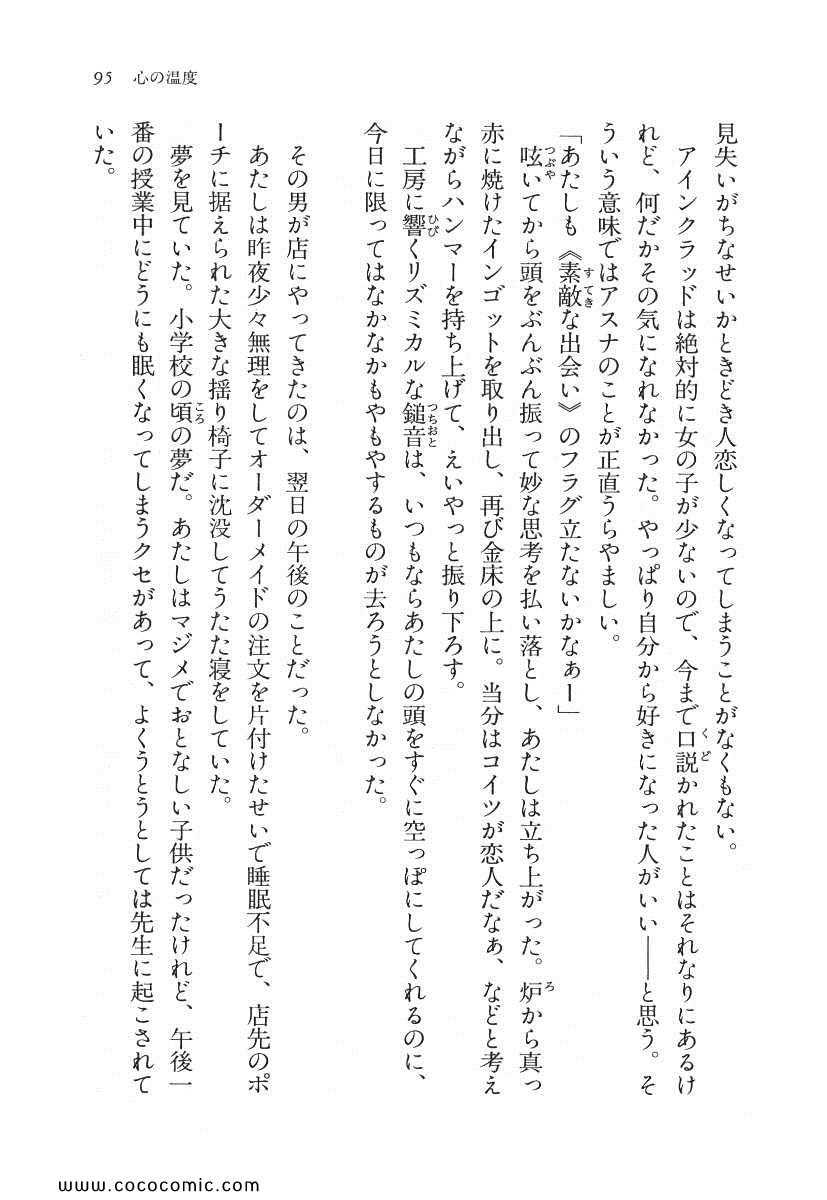 95 心の温度
見失いがちなせいかときどき人恋しくなってしまうことがなくもない。
アインクラッドは絶対的に女の子が少ないので、今まで口説かれたことはそれなりにあるけ
れど、何だかその気になれなかった。やっぱり自分から好きになった人がいい——と思う。そ
ういう意味ではアスナのことが正直うらやましい。
「あたしも《素敵な出会い》のフラグ立たないかなぁー」
呟いてから頭をぶんぶん振って妙な思考を払い落とし、あたしは立ち上がった。炉から真っ
赤に焼けたインゴットを取り出し、再び金床の上に。当分はコイツが恋人だなぁ、などと考え
ながらハンマーを持ち上げて、えいやっと振り下ろす。
工房に響くリズミカルな鎚音は、いつもならあたしの頭をすぐに空っぽにしてくれるのに、
今日に限ってはなかなかもやもやするものが去ろうとしなかった。
その男が店にやってきたのは、翌日の午後のことだった。
あたしは昨夜少々無理をしてオーダーメイドの注文を片付けたせいで睡眠不足で、店先のポ
ーチに据えられた大きな揺り椅子に沈没してうたた寝をしていた。
夢を見ていた。小学校の頃の夢だ。あたしはマジメでおとなしい子供だったけれど、午後一
番の授業中にどうにも眠くなってしまうクセがあって、よくうとうとしては先生に起こされて
いた。
www.cococomic.com